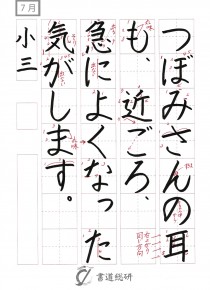 7月
つぼみさんの耳
も、近ごろ、
急によくなった
気がします。
小三
書道総研